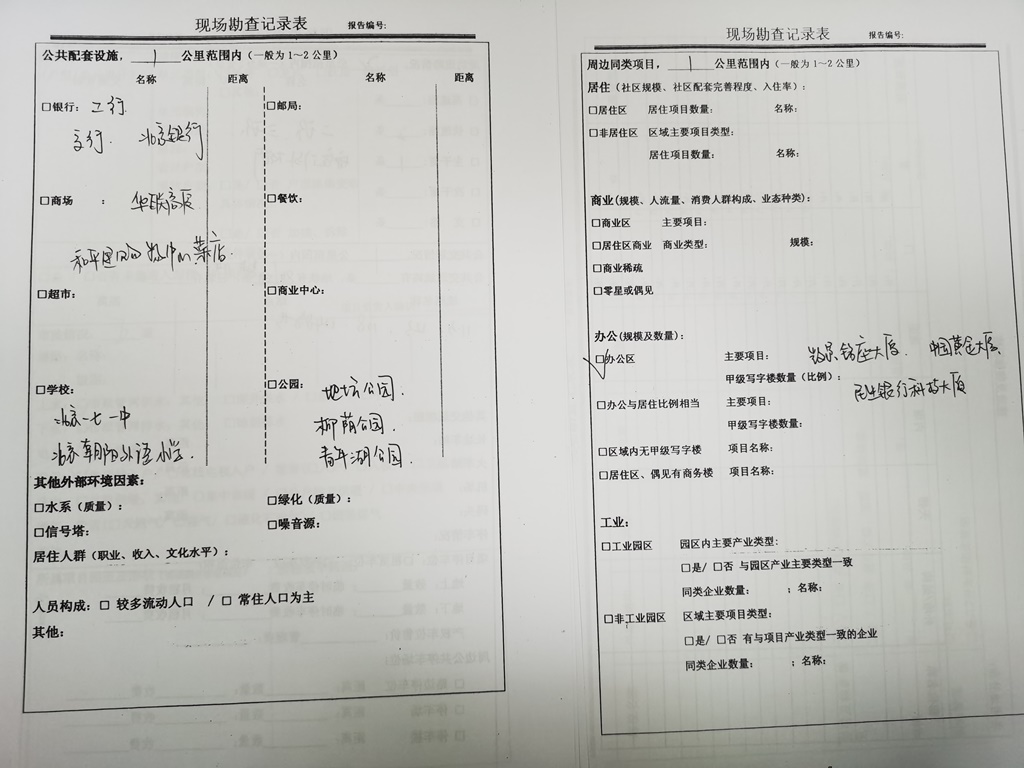 现场勘查记录表 报告编号:
公共配套设施，1 公里范围内（一般为 1～2 公里）
名称 距离 名称 距离
□银行：工行 □邮局：
京行 北京银行
□商场 ： 华联商厦 □餐饮：
和平里
□超市： □商业中心：
□学校： □公园： 地坛公园
北京一七一中 柳荫公园
北京朝阳外语小学 青年湖公园
其他外部环境因素：
□水系（质量）： □绿化（质量）：
□信号塔： □噪音源：
居住人群（职业、收入、文化水平）：
人员构成：□ 较多流动人口 / □ 常住人口为主
其他：
现场勘查记录表 报告编号:
周边同类项目，1 公里范围内（一般为 1～2 公里）
居住（社区规模、社区配套完善程度、入住率）：
□居住区 居住项目数量： 名称：
□非居住区 区域主要项目类型：
居住项目数量： 名称：
商业(规模、人流量、消费人群构成、业态种类)：
□商业区 主要项目：
□居住区商业 商业类型： 规模：
□商业稀疏
□零星或偶见
办公(规模及数量)：
□办公区 主要项目： 大厦、中国黄金大厦、
甲级写字楼数量（比例）： 民生银行科技大厦
□办公与居住比例相当 主要项目：
甲级写字楼数量：
□区域内无甲级写字楼 项目名称：
□居住区、偶见有商务楼 项目名称：
工业：
□工业园区 园区内主要产业类型：
□是/ □否 与园区产业主要类型一致
同类企业数量： ；名称：
□非工业园区 区域主要项目类型：
□是/ □否 有与项目产业类型一致的企业
同类企业数量： ；名称：